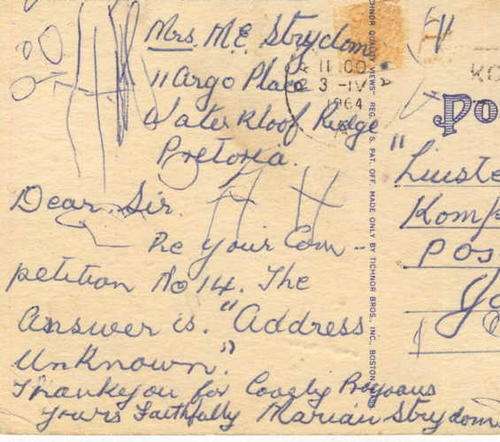 Mrs. M.E. Strydom
11 Argo Place
Waterkloof Ridge
Pretoria.
Dear Sir.
Re your Com-
petition No 14. The
Answer is. "Address
Unknown."
Thankyou for Lovely Programs
Yours Faithfully Marian Strydom
11 00
3 -IV
1964
TICHNOR QUALITY VIEWS. REG. U. S. PAT. OFF. MADE ONLY BY TICHNOR BROS., INC., BOSTON
Po
"Luiste
Komp
POS